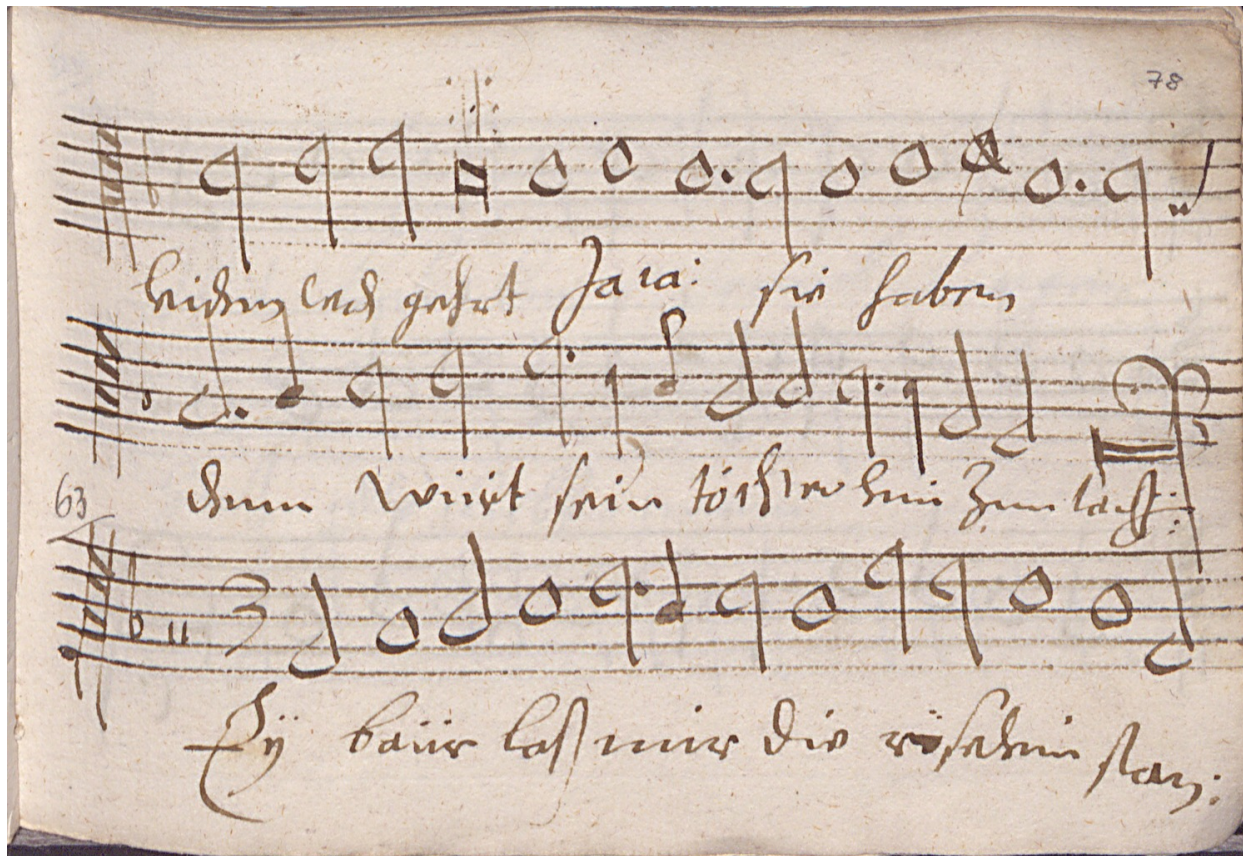 78
leiden gehrt Ja ia: sie haben
dem würt sein töchterlein zum
63
Ey baür laß mir die röselein stan: